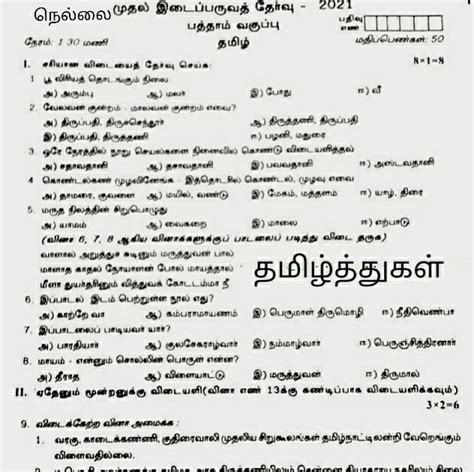 நெல்லை முதல் இடைப்பருவத் தேர்வு - 2021
பத்தாம் வகுப்பு
பதிவு எண்
நேரம்: 1.30 மணி தமிழ் மதிப்பெண்கள்: 50
I. சரியான விடையைத் தேர்வு செய்க: 8×1=8
1. பூ விரியத் தொடங்கும் நிலை
அ) அரும்பு ஆ) மலர் இ) போது ஈ) வீ
2. வேலவன் குன்றம் - மாலவன் குன்றம் எவை?
அ) திருப்பதி, திருச்செந்தூர் ஆ) திருத்தணி, திருப்பதி
இ) திருப்பதி, திருத்தணி ஈ) பழனி, மதுரை
3. ஒரே நேரத்தில் நூறு செயல்களை நினைவில் கொண்டு விடையளித்தல்
அ) சதாவதானி ஆ) தசாவதானி இ) பவவதானி ஈ) அஸ்டவதானி
4. கொண்டல்கண் முழவினேங்க - இத்தொடரில் கொண்டல், முழவு எவை
அ) தாமரை, குவளை ஆ) மயில், வண்டு இ) மேகம், மத்தளம் ஈ) யாழ், திரை
5. மருத நிலத்தின் சிறுபொழுது
அ) யாமம் ஆ) வைகறை இ) மாலை ஈ) எற்பாடு
(வினா 6, 7, 8 ஆகிய வினாக்களுக்குப் பாடலைப் படித்து விடை தருக)
வாளால் அறுத்துச் சுடினும் மருத்துவன் பால்
மாளாத காதல் நோயாளன் போல் மாயத்தால்
மீளா துயர்தரினும் வித்துவக் கோட்டம்மா நீ
தமிழ்த்துகள்
6. இப்பாடல் இடம் பெற்றுள்ள நூல் எது?
அ) காற்றே வா ஆ) கம்பராமாயணம் இ) பெருமாள் திருமொழி ஈ) நீதிவெண்பா
7. இப்பாடலைப் பாடியவர் யார்?
அ) பாரதியார் ஆ) குலசேகராழ்வார் இ) நம்மாழ்வார் ஈ) பெருஞ்சித்திரனார்
8. மாயம் - என்னும் சொல்லின் பொருள் என்ன?
அ) தீராத ஆ) விளையாட்டு இ) மருத்துவன் ஈ) துமால்
II. ஏதேனும் மூன்றனுக்கு விடையளி(வினா எண் 13க்கு கண்டிப்பாக விடையளிக்கவும்)
3×2=6
9. விடைக்கேற்ற வினா அமைக்க :
1. வரகு, காடைக்கண்ணி, குதிரைவாலி முதலிய சிறுகூலங்கள் தமிழ்நாட்டிலன்றி வேறெங்கும்
விளைவதில்லை.